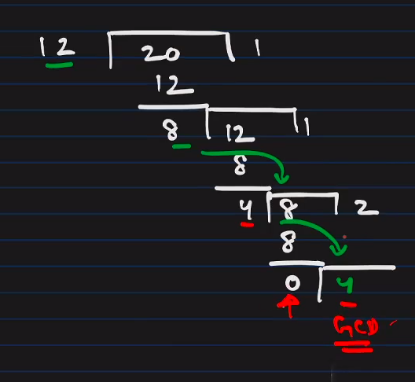 12 20 1
12
8 12 1
8
4 8 2
8
0 4
GCD